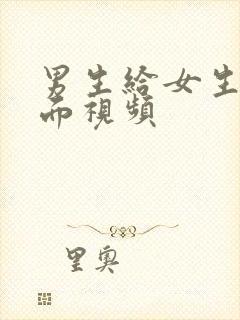 男生給女生
而視頻
里奧